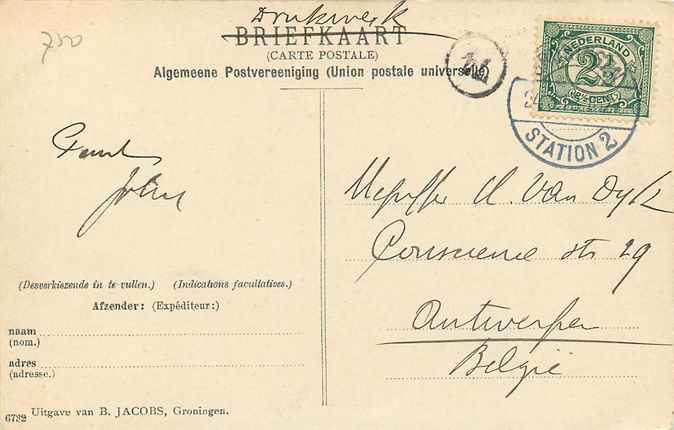 Drukwerk
750
BRIEFKAART
(CARTE POSTALE)
Algemeene Postvereeniging (Union postale universelle)
NEDERLAND
2½
(2½ CENT)
STATION 2
John
Van Dyk
Conscience str 29
Antwerpen
België
(Desverkiezende in te vullen.) (Indications facultatives.)
Afzender: (Expéditeur:)
naam
(nom.)
adres
(adresse.)
6732 Uitgave van B. JACOBS, Groningen.